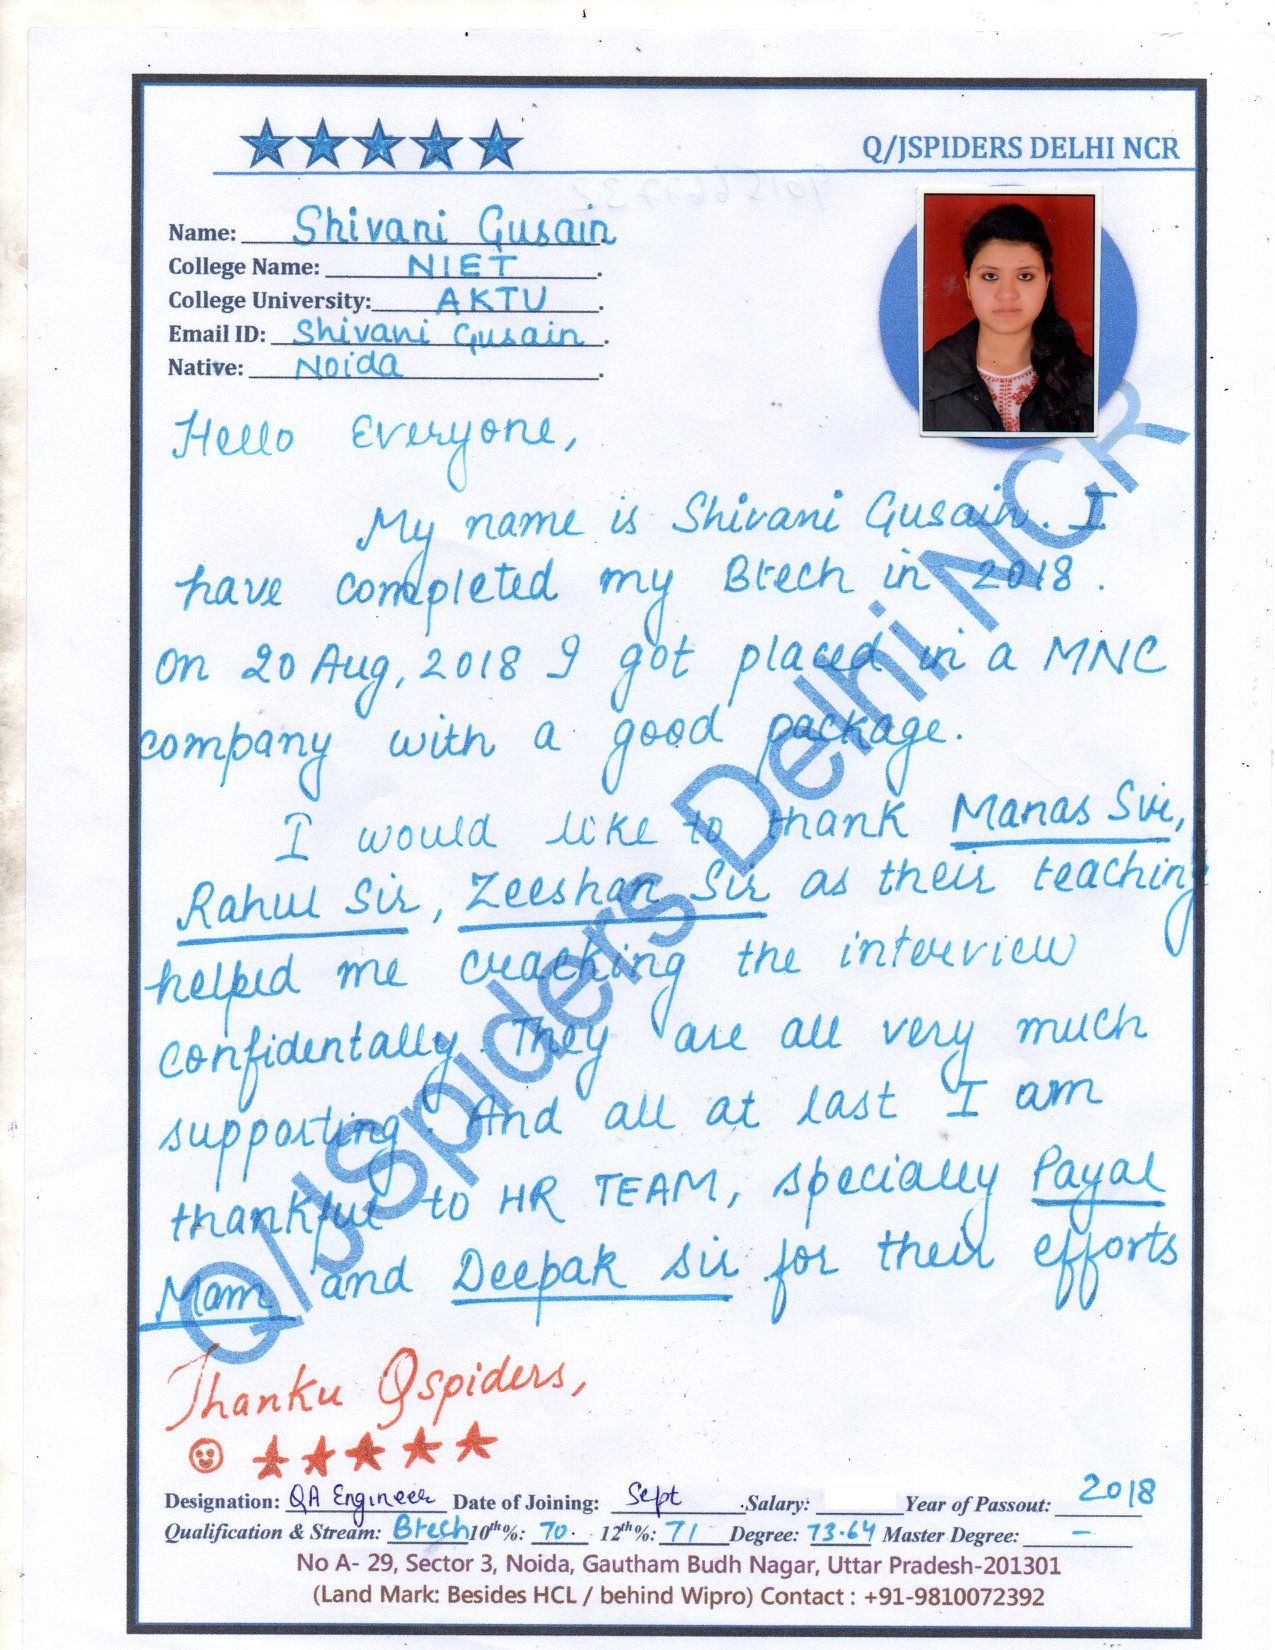 Q/JSPIDERS DELHI NCR
Name: Shivani Gusain
College Name: NIET.
College University: AKTU.
Email ID: Shivani Gusain.
Native: Noida.
Hello Everyone,
My name is Shivani Gusain. I
have completed my Btech in 2018.
On 20 Aug, 2018 I got placed in a MNC
company with a good package.
I would like to thank Manas Sir,
Rahul Sir, Zeeshan Sir as their teaching
helped me cracking the interview
confidentally. They are all very much
supporting. And all at last I am
thankful to HR TEAM, specially Payal
Mam and Deepak sir for their efforts
Q/JSpiders Delhi NCR
Thanku Qspiders,
Designation: QA Engineer Date of Joining: Sept .Salary: Year of Passout: 2018
Qualification & Stream: Btech 10th%: 70. 12th%: 71 Degree: 73.64 Master Degree: —
No A- 29, Sector 3, Noida, Gautham Budh Nagar, Uttar Pradesh-201301
(Land Mark: Besides HCL / behind Wipro) Contact : +91-9810072392